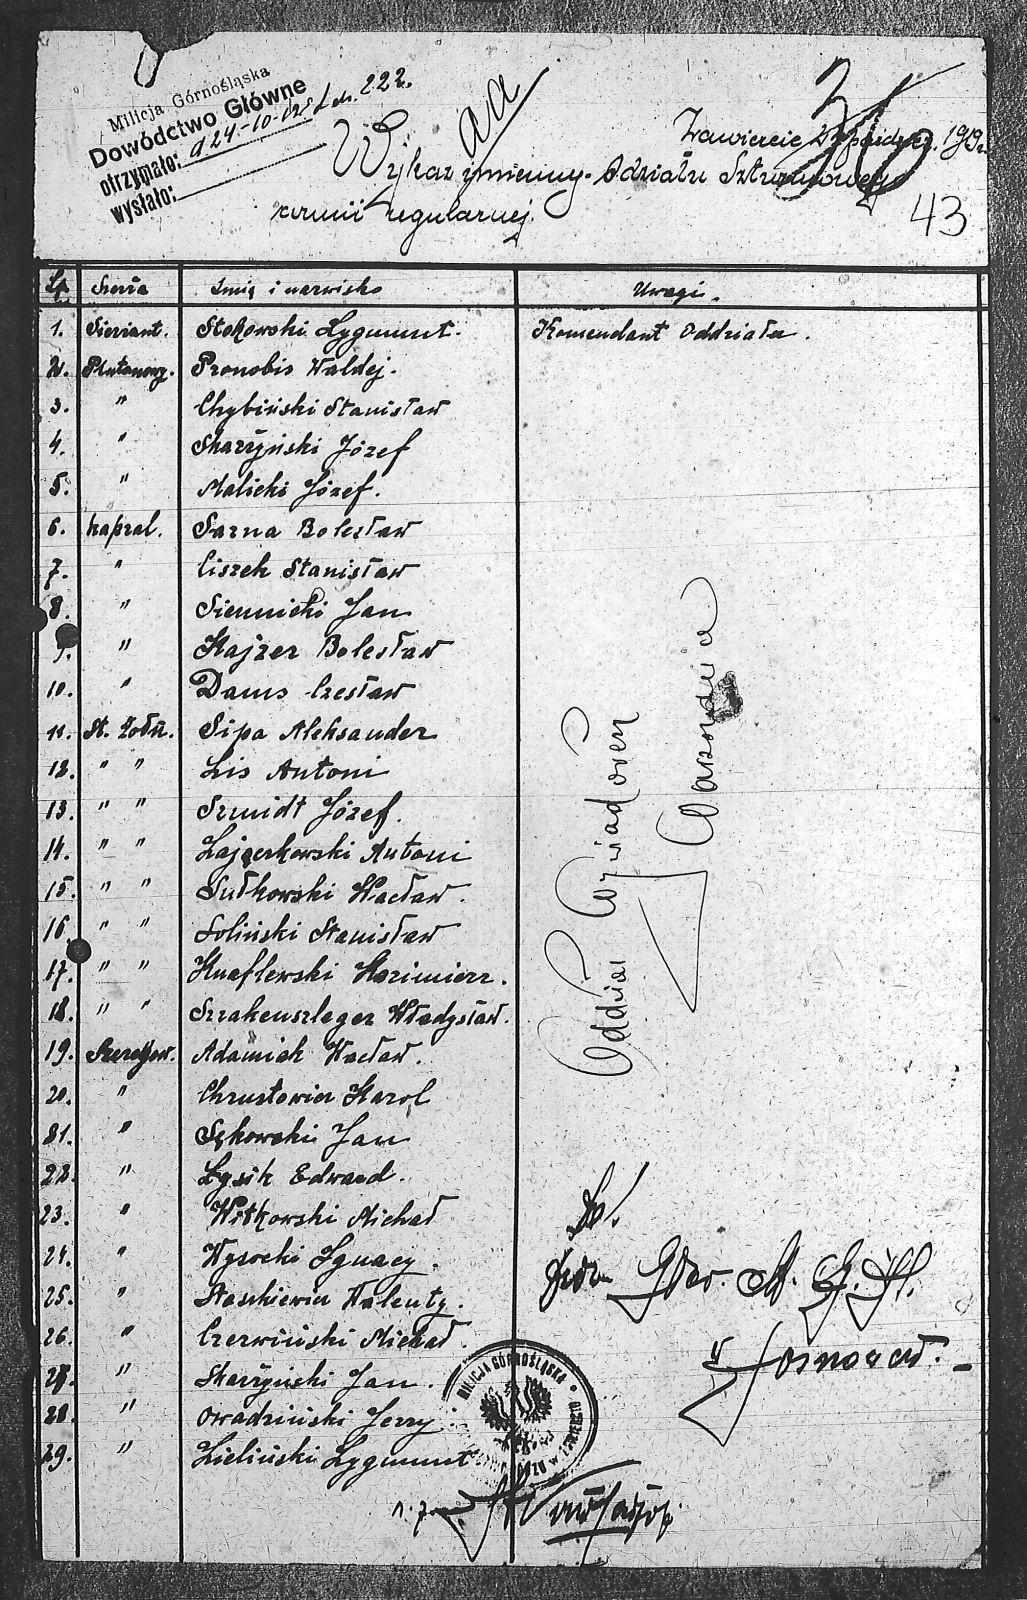 Milicja Górnośląska
Dowództwo Główne
otrzymało: d 24-10-19 L dz. 222.
wysłało:
aa
Zawiercie paźdz. 1919 r.
43
Wykaz imienny Odziału Szturmowego
armii regularnej.
Lp Szarża Imię i nazwisko Uwagi.
1. Sierżant. Stokowski Zygmunt. Komendant Oddziału.
2. Plutonowy. Pronobis Waldej.
3. " Chybiński Stanisław
4. " Skarzyński Józef
5. " Malicki Józef.
6. kapral. Sarna Bolesław
7. " Ciszek Stanisław
8. " Siennicki Jan
9. " Kajzer Bolesław
10. " Danis Czesław
11. St. Żołn. Sipa Aleksander
12. " " Lis Antoni
13. " " Szmidt Józef.
14. " " Zajączkowski Antoni
15. " " Sułkowski Wacław.
16. " " Soliński Stanisław
17. " " Knaflewski Kazimierz.
18. " " Szrakenszleger Władysław.
19. Szeregow. Adamiak Wacław.
20. " Chrustowicz Karol
21. " Sękowski Jan
22. " Łysik Edward.
23. " Witkowski Michał
24. " Wysocki Ignacy.
25. " Staszkiewicz Walenty.
26. " Czerwiński Michał.
27. " Skarzyński Jan.
28. " Owadziński Jerzy.
29. " Zieliński Zygmunt
Oddział Wywiadowczy
Do!
Gł. M. G. Śl.
Sosnowcu.
MILICJA GÓRNOŚLĄSKA
W ZAWIERCIU